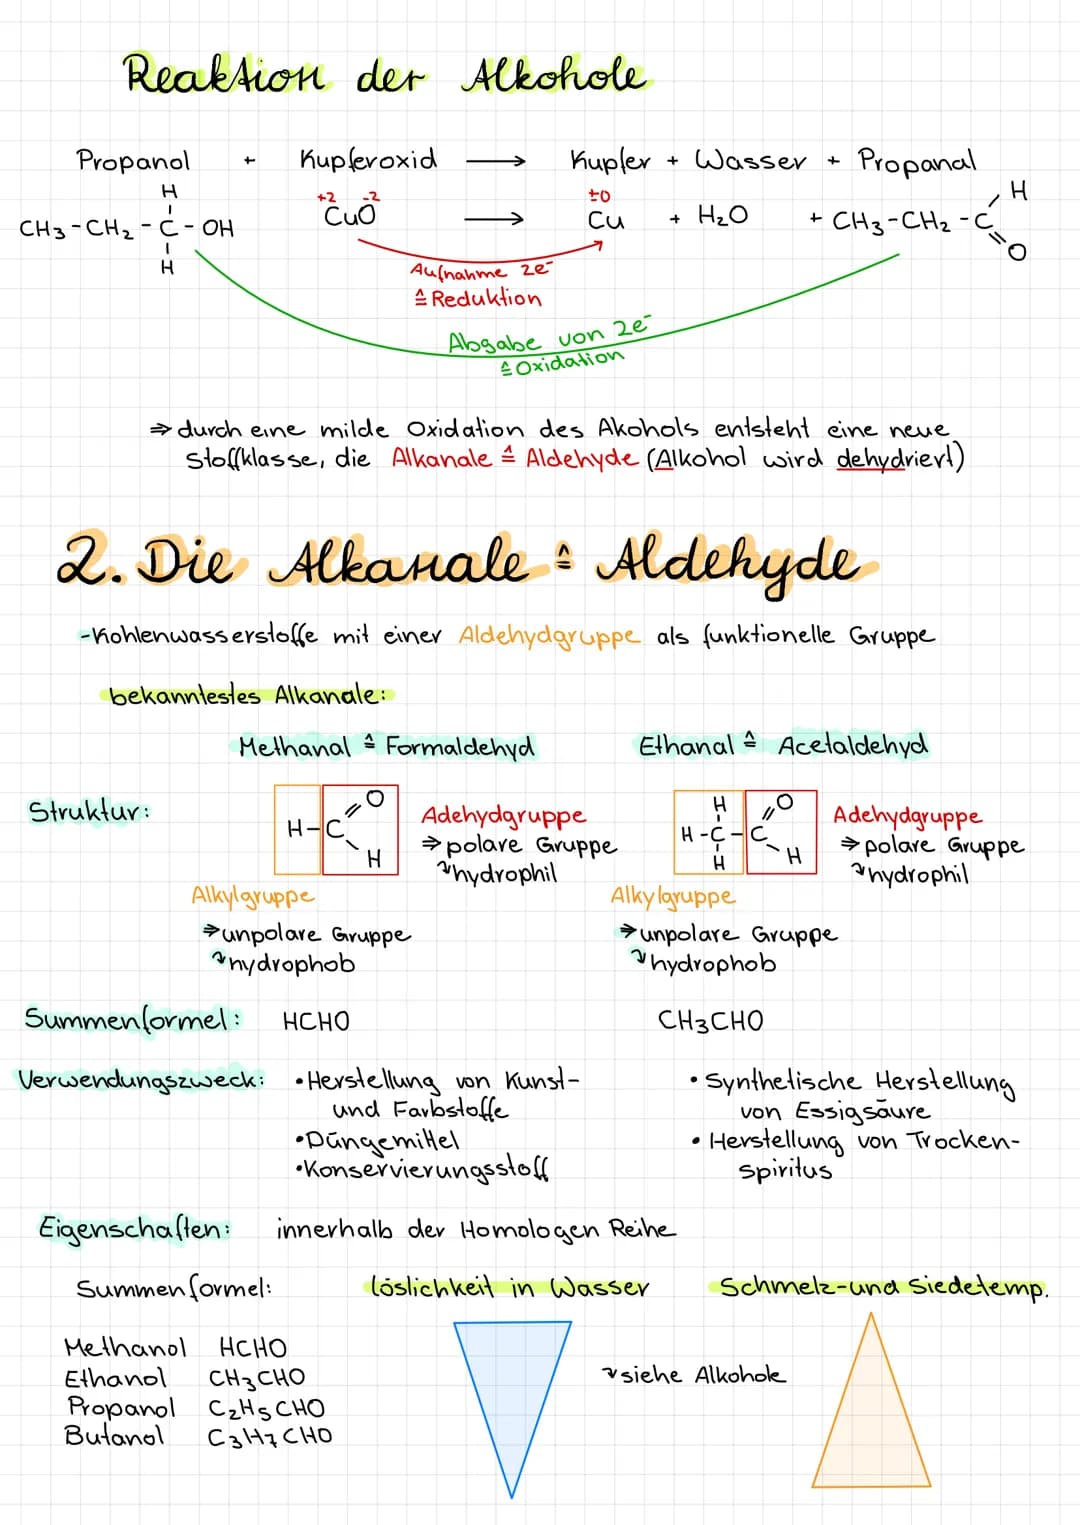 Reaktion der Alkohole
Propanol + Kupferoxid ⟶ Kupfer + Wasser + Propanal
H
+2 -2
±0
H
CH3-CH2-C-OH CuO ⟶ Cu + H2O + CH3-CH2-C
H
O
Aufnahme 2e⁻
≙ Reduktion
Abgabe von 2e⁻
≙ Oxidation
⇒ durch eine milde Oxidation des Akohols entsteht eine neue
Stoffklasse, die Alkanale ≙ Aldehyde (Alkohol wird dehydriert)
2. Die Alkanale ≙ Aldehyde
-Kohlenwasserstoffe mit einer Aldehydgruppe als funktionelle Gruppe
bekanntestes Alkanale:
Methanal ≙ Formaldehyd Ethanal ≙ Acetaldehyd
Struktur:
O
H-C
H
Adehydgruppe
⇒ polare Gruppe
↝ hydrophil
H O
H-C-C
H H
Adehydgruppe
⇒ polare Gruppe
↝ hydrophil
Alkylgruppe
⇒ unpolare Gruppe
↝ hydrophob
Alkylgruppe
⇒ unpolare Gruppe
↝ hydrophob
Summenformel: HCHO CH3CHO
Verwendungszweck:
• Herstellung von Kunst-
und Farbstoffe
• Düngemittel
• Konservierungsstoff
• Synthetische Herstellung
von Essigsäure
• Herstellung von Trocken-
spiritus
Eigenschaften: innerhalb der Homologen Reihe
Summenformel: löslichkeit in Wasser Schmelz-und Siedetemp.
Methanol HCHO
Ethanol CH3CHO
Propanol C2H5CHO
Butanol C3H7CHO
↝ siehe Alkohole